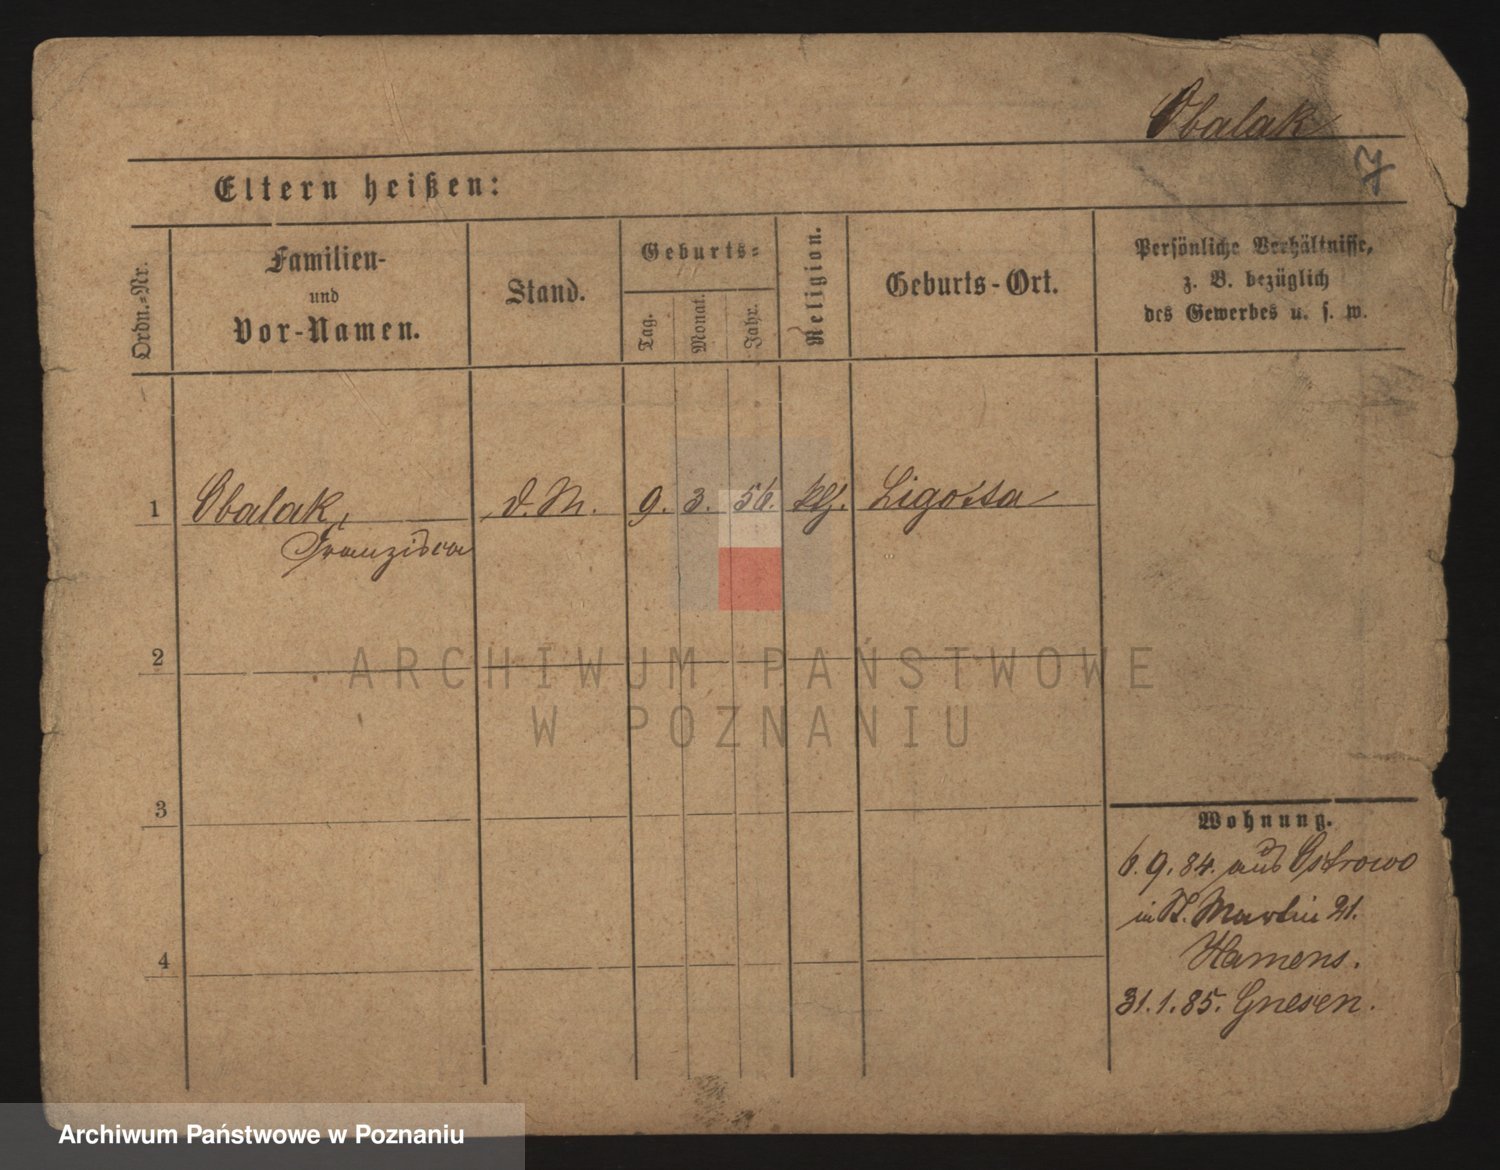 Obalak
7
Eltern heißen:
Ordn.-Nr.
Familien-
und
Vor-Namen.
Stand.
Geburts-
Tag.
Monat.
Jahr.
Religion.
Geburts-Ort.
Persönliche Verhältnisse,
z. B. bezüglich
des Gewerbes u. s. w.
1 Obalak, d. M. 9. 3. 56. kth. Ligotta
Franzisca
2
ARCHIWUM PAŃSTWOWE
W POZNANIU
3
Wohnung.
6.9.84. aus Ostrowo
in St. Martin 21.
Hamens.
4
31.1.85. Gnesen.
Archiwum Państwowe w Poznaniu